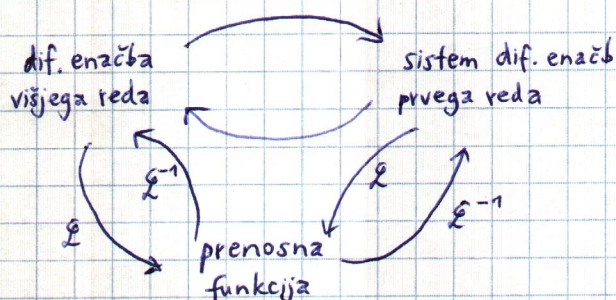 dif. enačba
višjega reda
sistem dif. enačb
prvega reda
ℒ
ℒ⁻¹
ℒ
ℒ⁻¹
prenosna
funkcija